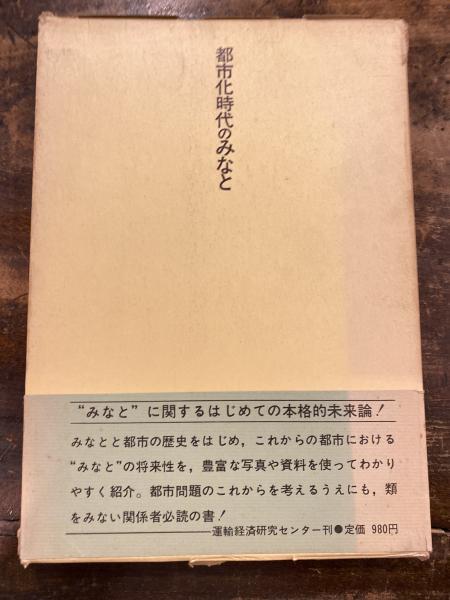 都市化時代のみなと
“みなと”に関するはじめての本格的未来論!
みなとと都市の歴史をはじめ,これからの都市における
“みなと”の将来性を,豊富な写真や資料を使ってわかり
やすく紹介。都市問題のこれからを考えるうえにも,類
をみない関係者必読の書!
運輸経済研究センター刊●定価 980円